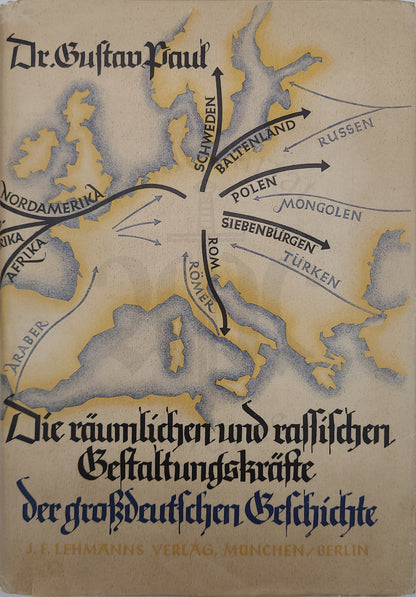 Dr. Gustav Paul
SCHWEDEN
BALTENLAND
RUSSEN
POLEN
NORDAMERIKA
MONGOLEN
SIEBENBÜRGEN
RIKA
AFRIKA
ROM
TÜRKEN
RÖMER
ARABER
Die räumlichen und rassischen
Gestaltungskräfte
der großdeutschen Geschichte
J. F. LEHMANNS VERLAG, MÜNCHEN/BERLIN